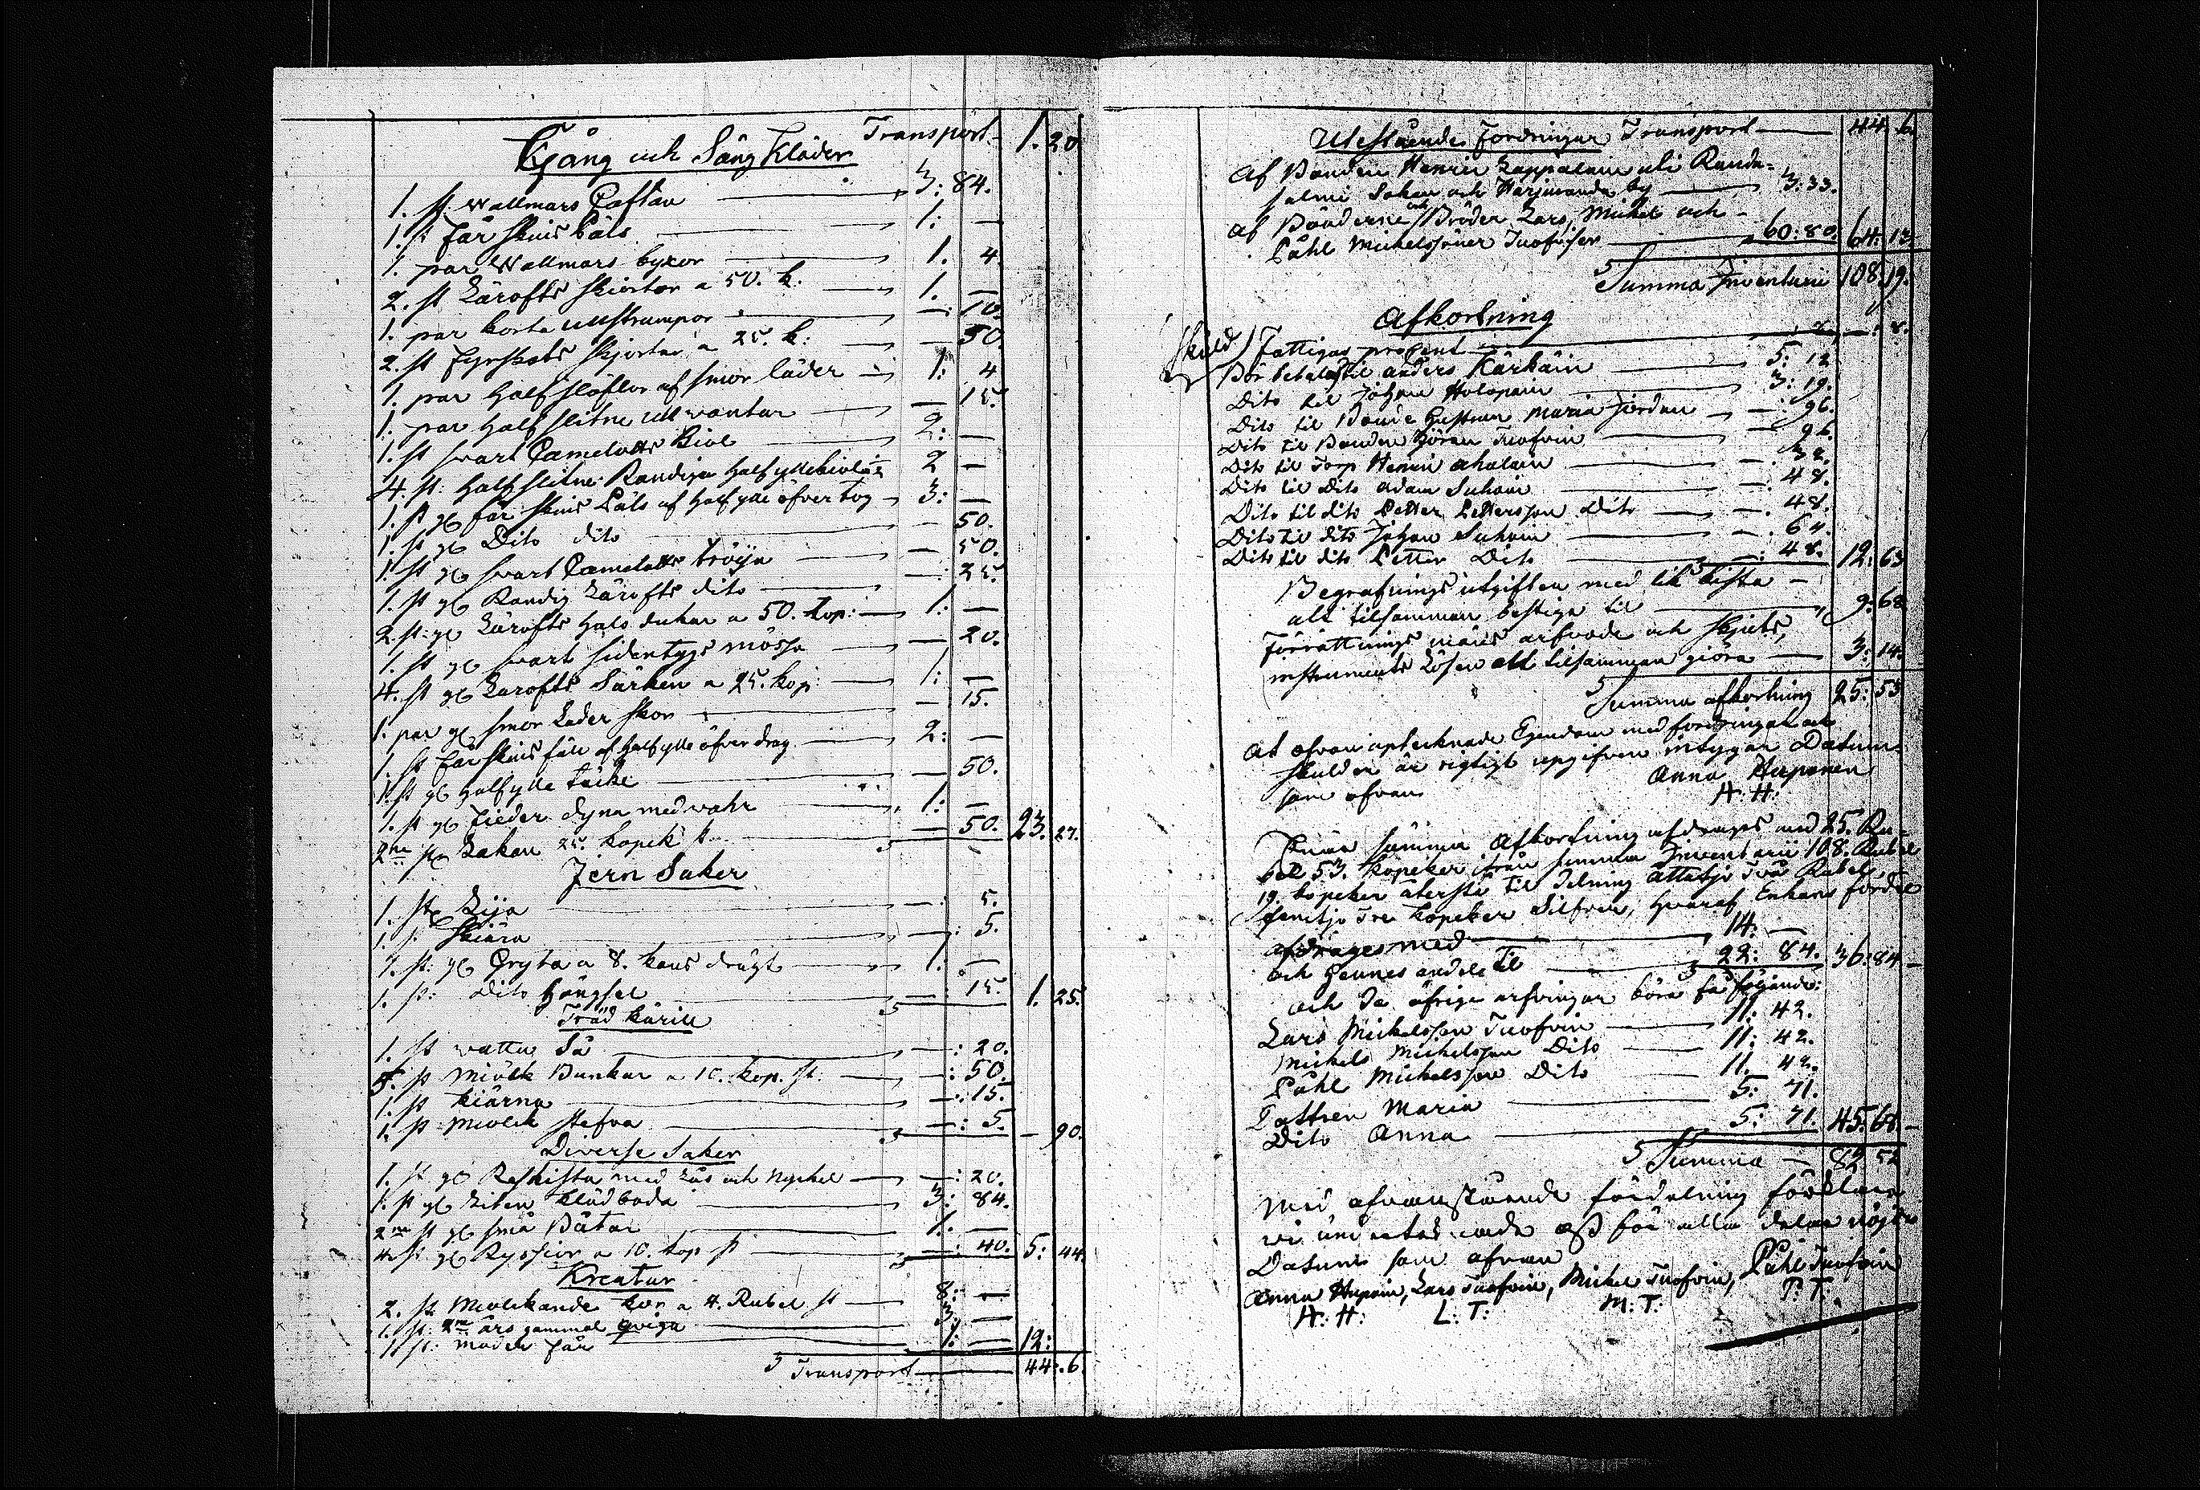 Transport 1. 20
Gång och Säng Kläder
1. st. Wallmars Caftan 3: 84.
1. st får skins Päls 1: —
1. par Wallmars byxor 1. 4.
2. st Lärofts skiortor a 50. k. 1. —
1. par korta ullstrumpor —: 10.
2. st Fyrskafts skjortor a 25. k: — 50.
1. par Halfstöflor af smor läder 1: 4
1. par Half slitne ull vantar — 15.
1. st svart Camelotts Kiol 2: —
4. st: Half slitne Randiga Halfylle 2 —
1. st gl får skins Päls af Halfylle öfver tog 3: —
1. st gl Dito dito — 50.
1. st gl svart Camelotts tröija — 50.
1. st gl Randig Lärofts dito —: 25.
2. st: gl Lärofts Hals dukar a 50. kop: 1: —
1. st gl svart sidentygs mössa — 20.
4. st gl Larofts Särken a 25. kop: 1: —
1. par gl smor Läder skor — 15.
1. st får skins fäll af halfylle öfver drag 2: —
1. st gl Halfylle täcke — 50.
1. st gl Fieder dyna med wahr 1: —
2ne st Lakan 25. kopek st — 50. 23. 27.
Jern Saker
1. st Lija —: 5.
1. st. Skiära —: 5.
1. st: gl Gryta a 8. kans drägt 1. —
1. st: Dito Hängsel —: 15. 1. 25.
Träd kärill
1. st vattu Så —: 20.
5. st Miölk Bunkar a 10. kop. st. —: 50.
1. st kiärna —: 15.
1. st miölk stefva —: 5. — 90.
Diverse Saker
1. st gl Reskista med Lås och Nyckel —: 20.
1. st gl Liten Klädboda 3: 84.
2ne st gl små Båtar 1. —
4. st. gl Ryssior a 10. kop st —: 40. 5: 44.
Kreatur
2. st Miölkande kor a 4. Rubel st 8: —
1. st: 2ne års gammal qviga 3: —
1. st: moder får 1: — 12:
Transport 44. 6.
Utestående Fordringar Transport 44. 6.
Af Bonden Henric Lappalain uti Randa-
salmi Sokn och Harjuranda by 3: 33.
af Bönderne och Bröder Lars, Michel och
Påhl Michelssöner Tuofvisen 60: 80. 64: 13
Summa Inventarii 108. 19.
Afkortning
Skuld Fattigas procent —: 8.
Bör betalas til Anders Kärkäin 5: 12
Dito til Johan Holopain 3: 19.
Dito til Bonde Hustrun Maria —: 96.
Dito til Bonden Göran Tuofvin — 96.
Dito til Torp Henric Ahalain —. 32.
Dito til Dito Adam Suhoin —: 48.
Dito til dito Petter Pettersson Dito —. 48.
Dito til dito Johan Suhoin —. 64.
Dito til dito Petter Dito —: 48. 12: 63
Begrafnings utgiften med lik kista
alt tilsamman bestiga til 9: 68
Förrättnings mäns arfvode och skifts
instruments Lösen alt tilsamman giöra 3: 14.
Summa afkortning 25: 53
At ofvan uptecknade Egendom med fordringar och
skulder är rigtigt upgifven intygar Datum
som ofvan Anna Huponen
A: H:
Enär summa Afkortning afdrages med 25. Ru-
bel 53. kopeker ifrån summa Inventarii 108. Rubel
19. kopeker återstår til delning åttatijo Två Rubel
femtijo Tre kopeker Silfver, hvaraf Enkans fördel
afdrages med 14: —
och Hennes andel til 22: 84. 36: 84
och de öfriga arfvingar böra få följande:
Lars Michelsson Tuofvin 11: 42.
Michel Michelsson Dito 11: 42.
Påhl Michelsson Dito 11. 42.
Dottren Maria 5: 71.
Dito Anna 5: 71. 45: 68
Summa 82. 52
Med ofvanstående fördelning förklara
vi undertecknade oss för alla delar nögde
Datum som ofvan
Anna Hupoin, Lars Tuofvin, Michel Tuofvin, Påhl Tuofvin
A: H: L: T: M: T: P: T.